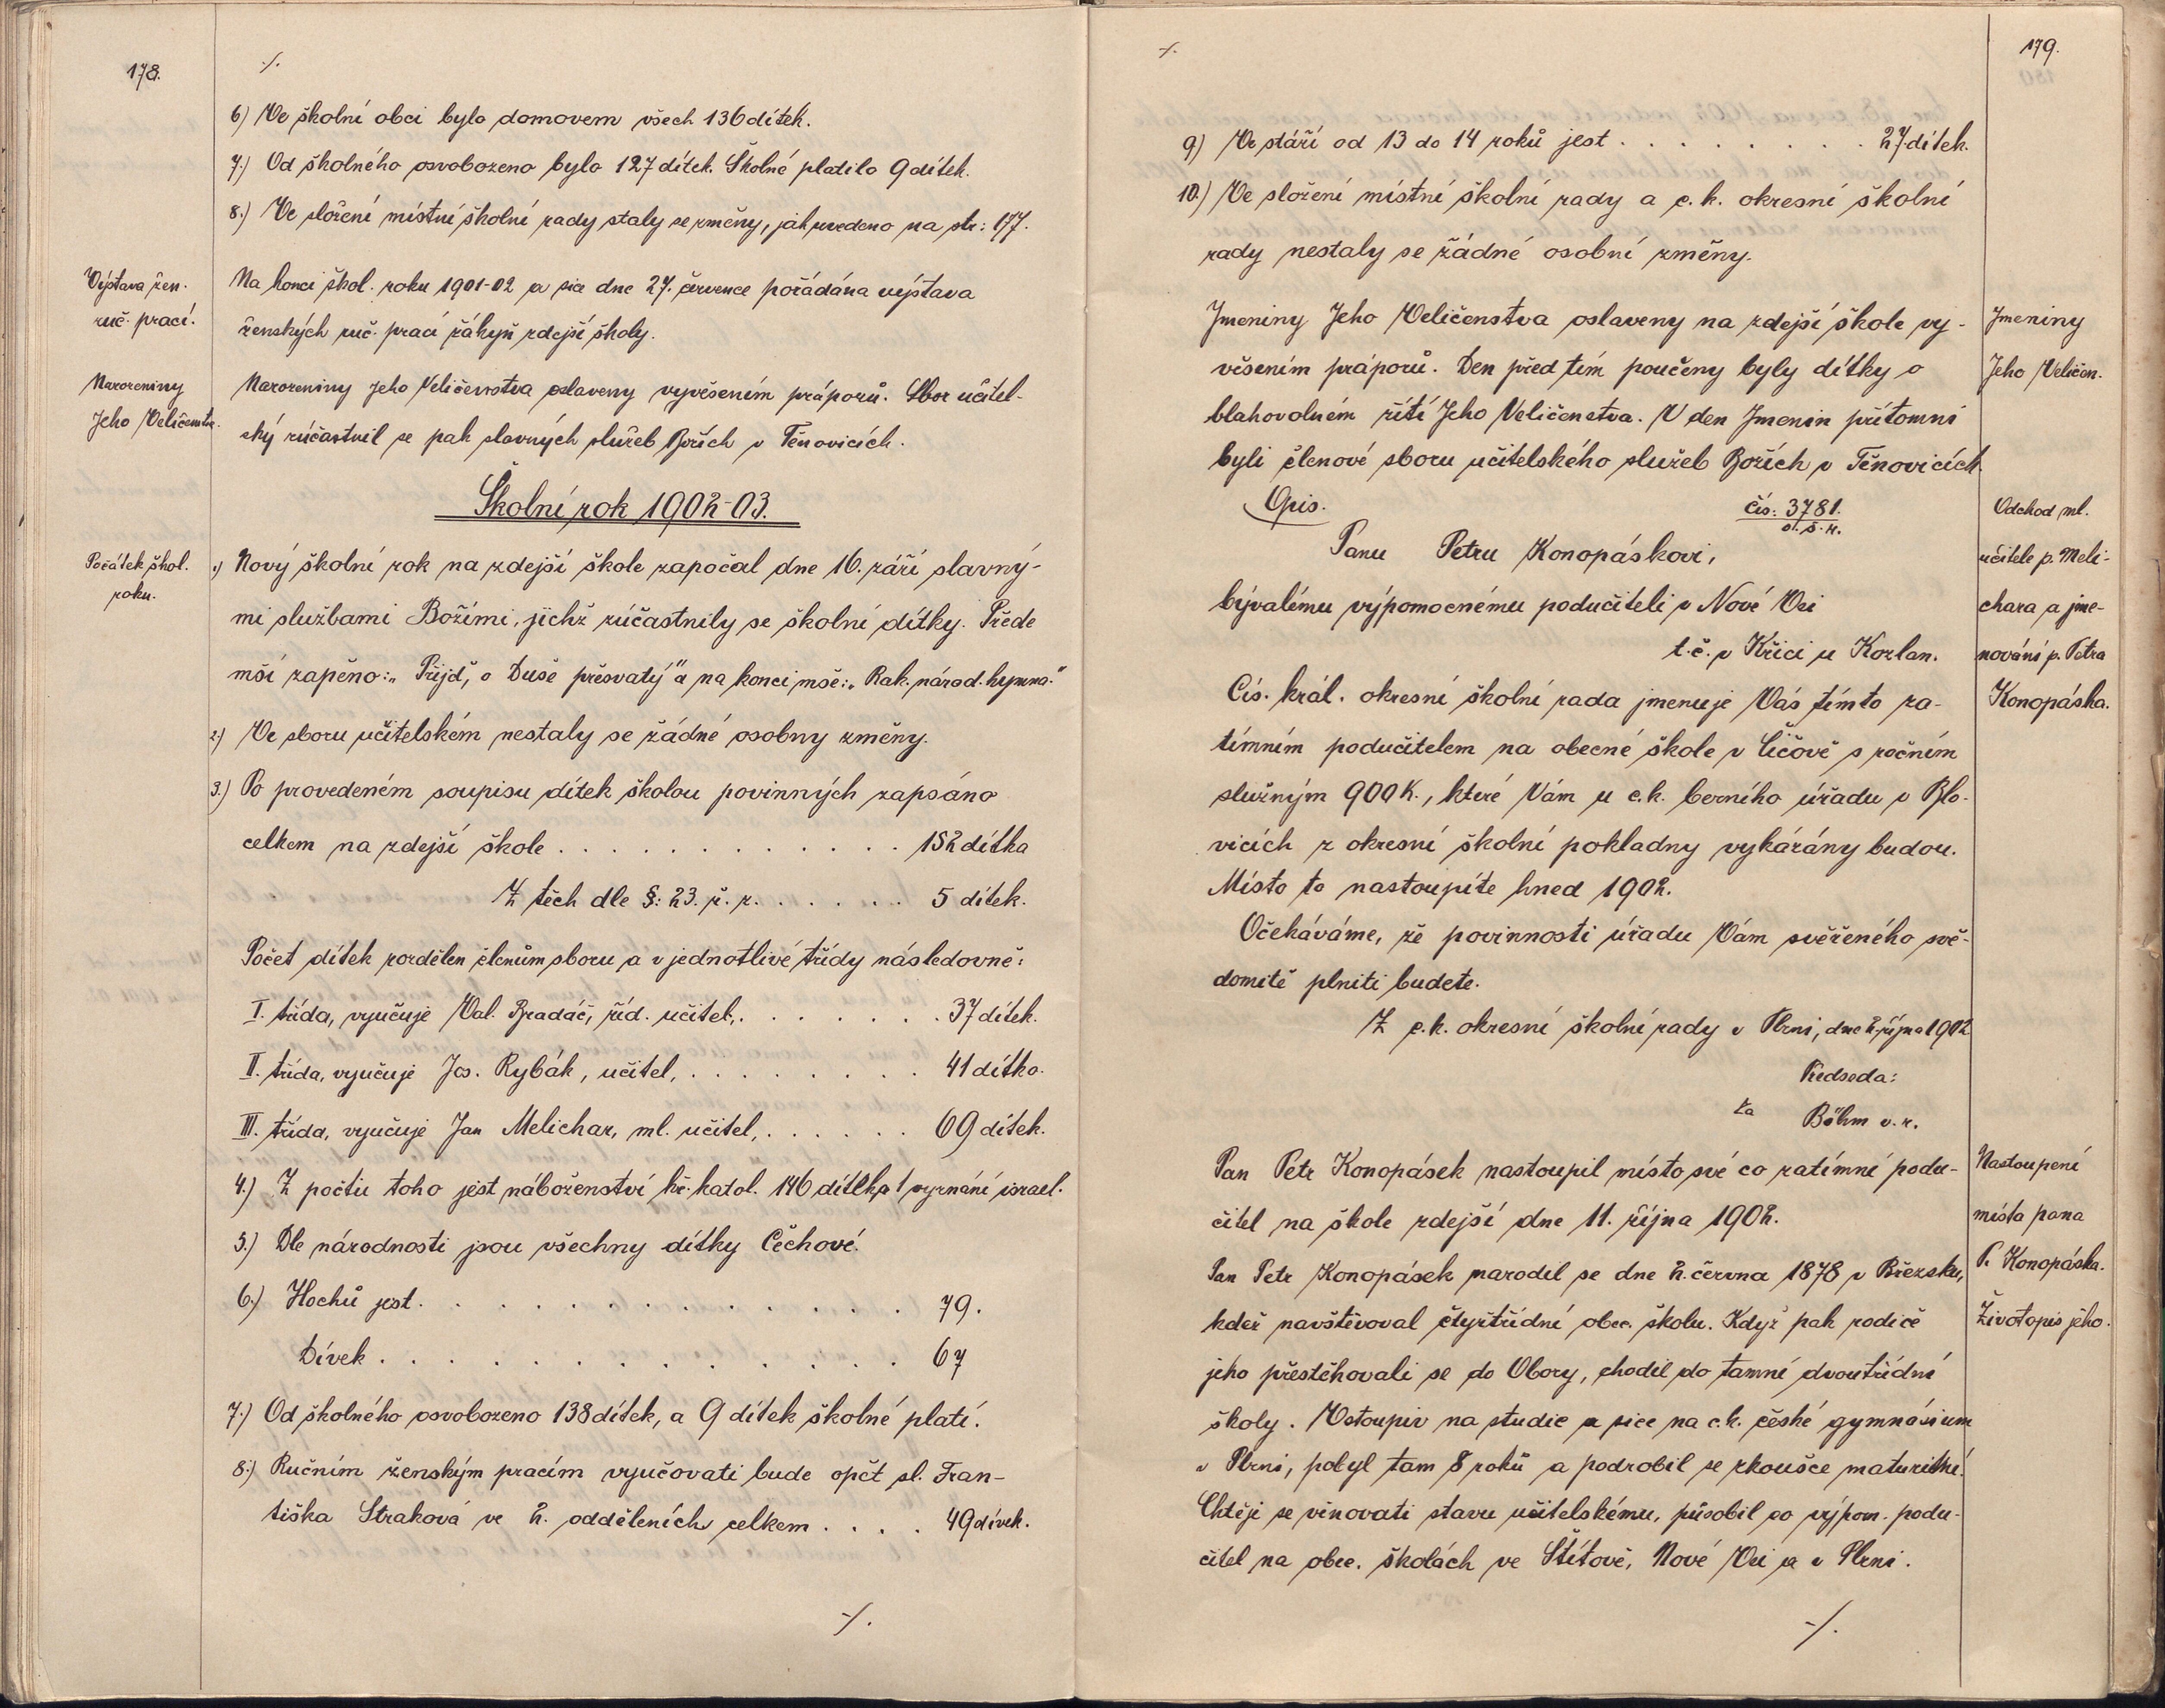 178.
./.
6) Ve školní obci bylo domovem všech 136 dítek.
7.) Od školného osvobozeno bylo 127 dítek. Školné platilo 9 dítek.
8.) Ve složení místní školní rady staly se změny, jak uvedeno na str: 177.
Výstava žen.
ruč. prací.
Na konci škol. roku 1901-02 a sice dne 27. července pořádána výstava
ženských ruč. prací žákyň zdejší školy.
Narozeniny
Jeho Veličenstv.
Narozeniny Jeho Veličenstva oslaveny vyvěšením práporů. Sbor učitel-
ský zúčastnil se pak slavných služeb Božích v Těnovicích.
Školní rok 1902-03.
Počátek škol.
roku.
1) Nový školní rok na zdejší škole započal dne 16. září slavný-
mi službami Božími, jichž zúčastnily se školní dítky. Přede
mší zapěno: „Přijď, o Duše přesvatý" a na konci mše: „Rak. národ. hymna."
2.) Ve sboru učitelském nestaly se žádné osobny změny.
3.) Po provedeném soupisu dítek školou povinných zapsáno
celkem na zdejší škole . . . . . . . . . . . . . 152 dítka
Z těch dle §: 23. ř. z. . . . . . . 5 dítek.
Počet dítek rozdělen členům sboru a v jednotlivé třídy následovně:
I. třída, vyučuje Val. Bradáč, říd. učitel, . . . . . . . . 37 dítek.
II. třída, vyučuje Jos. Rybák, učitel, . . . . . . . . . 41 dítko.
III. třída, vyučuje Jan Melichar, ml. učitel, . . . . . . 69 dítek.
4.) Z počtu toho jest náboženství řk. katol. 146 dítek, 1 vyznání israel.
5.) Dle národnosti jsou všechny dítky Čechové.
6.) Hochů jest . . . . . . . . . . . . . 79.
Dívek . . . . . . . . . . . . . . 67
7.) Od školného osvobozeno 138 dítek, a 9 dítek školné platí.
8.) Ručním ženským pracím vyučovati bude opět sl. Fran-
tiška Straková ve 2. odděleních celkem . . . . 49 dívek.
./.
./.
179.
9) Ve stáří od 13 do 14 roků jest . . . . . . . . . 27 dítek.
10.) Ve složení místní školní rady a c. k. okresní školní
rady nestaly se žádné osobní změny.
Jmeniny Jeho Veličenstva oslaveny na zdejší škole vy-
věšením práporů. Den před tím poučeny byly dítky o
blahovolném žití Jeho Veličenstva. V den Jmenin přítomni
byli členové sboru učitelského služeb Božích v Těnovicích.
Jmeniny
Jeho Veličen.
Opis.
čís: 3781.
o. š. r.
Panu Petru Konopáskovi,
bývalému výpomocnému podučiteli v Nové Vsi
t. č. v Křici u Kozlan.
Odchod ml.
učitele p. Meli-
chara a jme-
nování p. Petra
Konopáska.
Cís. král. okresní školní rada jmenuje Vás tímto za-
tímním podučitelem na obecné škole v Číčově s ročním
služným 900 K., které Vám u c. k. berního úřadu v Blo-
vicích z okresní školní pokladny vykázány budou.
Místo to nastoupíte hned 1902.
Očekáváme, že povinnosti úřadu Vám svěřeného své-
domitě plniti budete.
Z c. k. okresní školní rady v Plzni, dne 2. října 1902
Předseda:
Za Böhm v. r.
Pan Petr Konopásek nastoupil místo své co zatímní podu-
čitel na škole zdejší dne 11. října 1902.
Nastoupení
místa pana
P. Konopáska.
Pan Petr Konopásek narodil se dne 2. června 1878 v Březsku,
kdež navštěvoval čtyřtřídní obec. školu. Když pak rodiče
jeho přestěhovali se do Obory, chodil do tamní dvoutřídní
školy. Vstoupiv na studie a sice na c. k. české gymnásium
v Plzni, pobyl tam 8 roků a podrobil se zkoušce maturitní.
Chtěje se věnovati stavu učitelskému, působil co výpom. podu-
čitel na obec. školách ve Štítově, Nové Vsi a v Plzni.
Životopis jeho.
./.